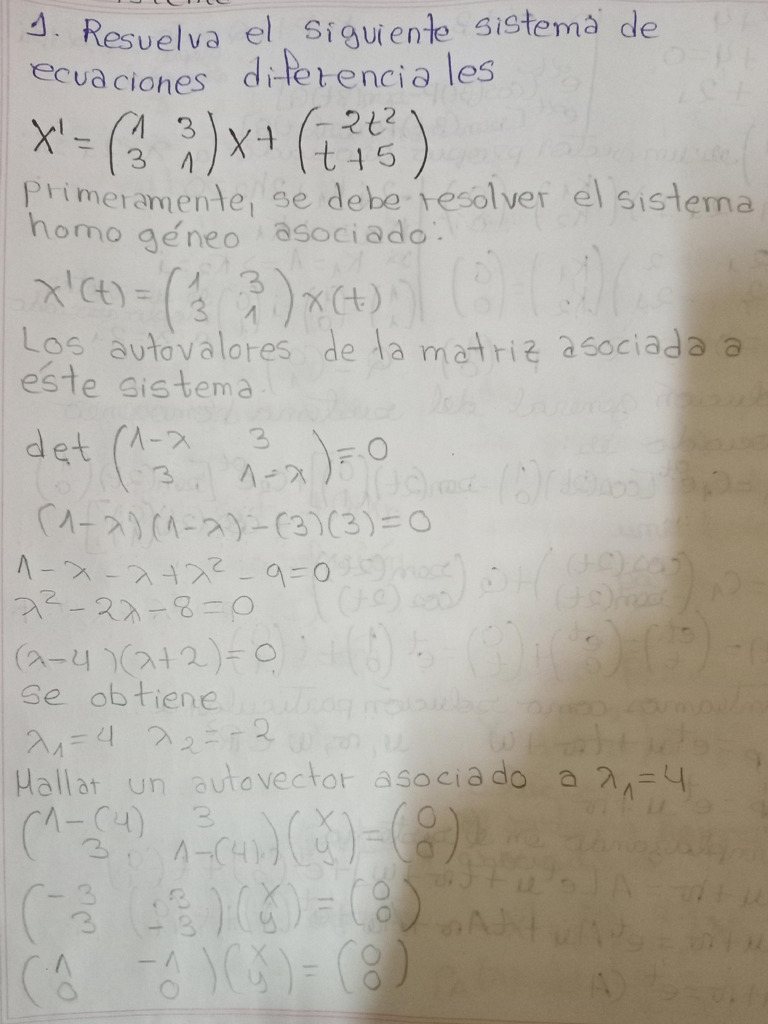 1. Resuelva el siguiente sistema de
ecuaciones diferenciales
X' = (1 3; 3 1) X + (-2t²; t+5)
Primeramente, se debe resolver el sistema
homogéneo asociado:
X'(t) = (1 3; 3 1) X(t)
Los autovalores de la matriz asociada a
este sistema.
det (1-λ 3; 3 1-λ) = 0
(1-λ)(1-λ)-(3)(3)=0
1-λ-λ+λ²-9=0
λ²-2λ-8=0
(λ-4)(λ+2)=0
se obtiene
λ₁=4 λ₂=-2
Hallar un autovector asociado a λ₁=4
(1-(4) 3; 3 1-(4)) (x; y) = (0; 0)
(-3 3; 3 -3) (x; y) = (0; 0)
(1 -1; 0 0) (x; y) = (0; 0)